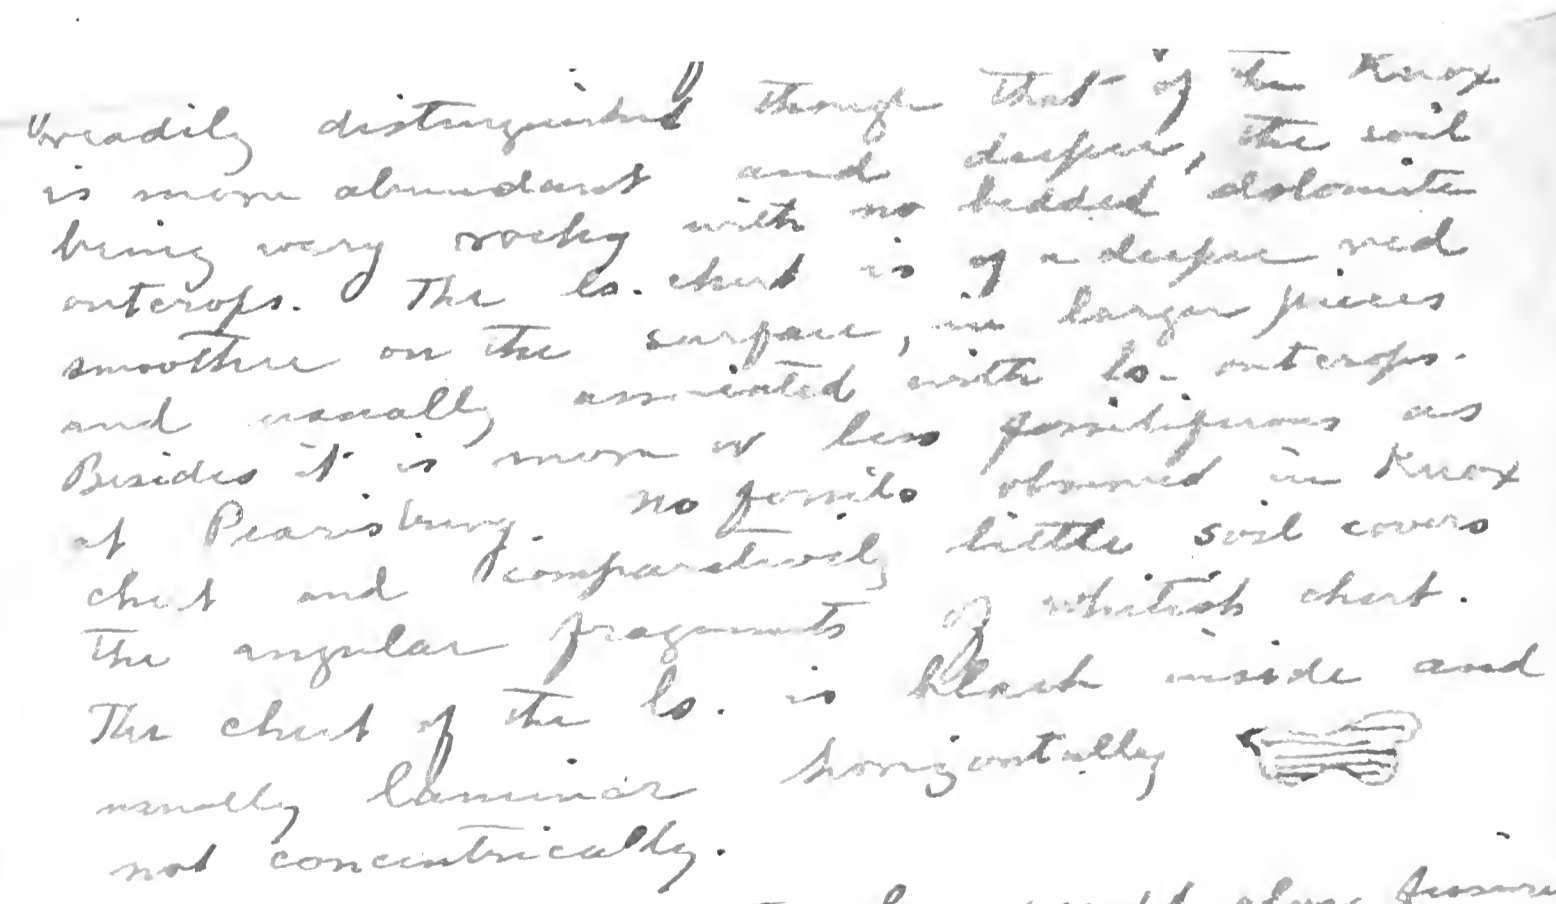 "readily distinguished" though that of the Knox
is more abundant and deeper, the soil
being very rocky with no bedded dolomite
outcrops. The ls. chert is of a deeper red
smoother on the surface, in larger pieces
and usually associated with ls. outcrops.
Besides it is more or less fossiliferous as
at Pearisburg. No fossils observed in Knox
chert and comparatively little soil covers
the angular fragments of whitish chert.
The chert of the ls. is black inside and
usually laminar horizontally
not concentrically.
along fissure